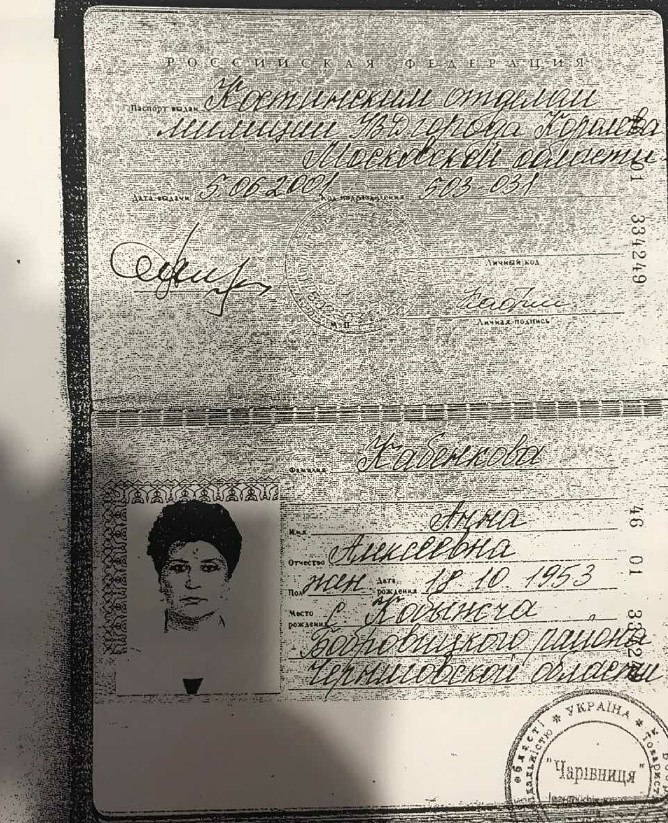 РОССИЙСКАЯ ФЕДЕРАЦИЯ
Паспорт выдан Костинским отделом
милиции УВД города Королёва
Московской области
Дата выдачи 5.06.2001 Код подразделения 503-031
Личный код
М.П.
Личная подпись
01 334249
Фамилия Кабенкова
Имя Анна
Отчество Алексеевна
Пол жен Дата рождения 18.10.1953
Место рождения с. Кобыжча
Бобровицкого района
Черниговской области
46 01
УКРАЇНА
"Чарівниця"